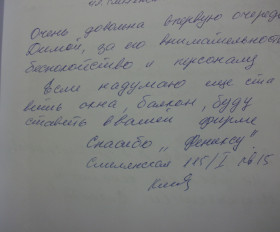 Очень довольна впервую очередь
Димой, за его внимательность
беспокойство и
Если надумаю еще ста
вить окна, балкон, буду
ставить в вашей фирме
Спасибо „Фениксу"
Смелянская 115/I